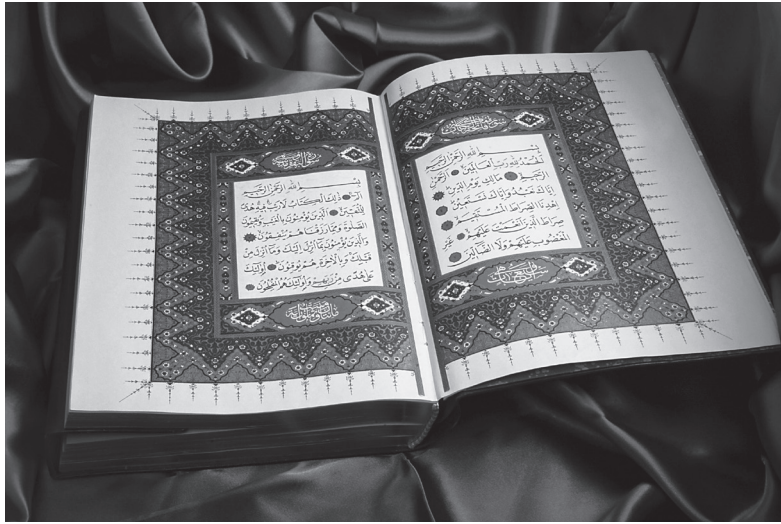 بسم الله الرحمن الرحيم
الحمد لله رب العالمين الرحمن
الرحيم مالك يوم الدين
إياك نعبد وإياك نستعين
اهدنا الصراط المستقيم
صراط الذين أنعمت عليهم غير
المغضوب عليهم ولا الضالين
بسم الله الرحمن الرحيم
الم ذلك الكتاب لا ريب فيه هدى
للمتقين الذين يؤمنون بالغيب ويقيمون
الصلوة ومما رزقناهم ينفقون
والذين يؤمنون بما أنزل إليك وما أنزل من
قبلك وبالآخرة هم يوقنون أولئك
على هدى من ربهم وأولئك هم المفلحون